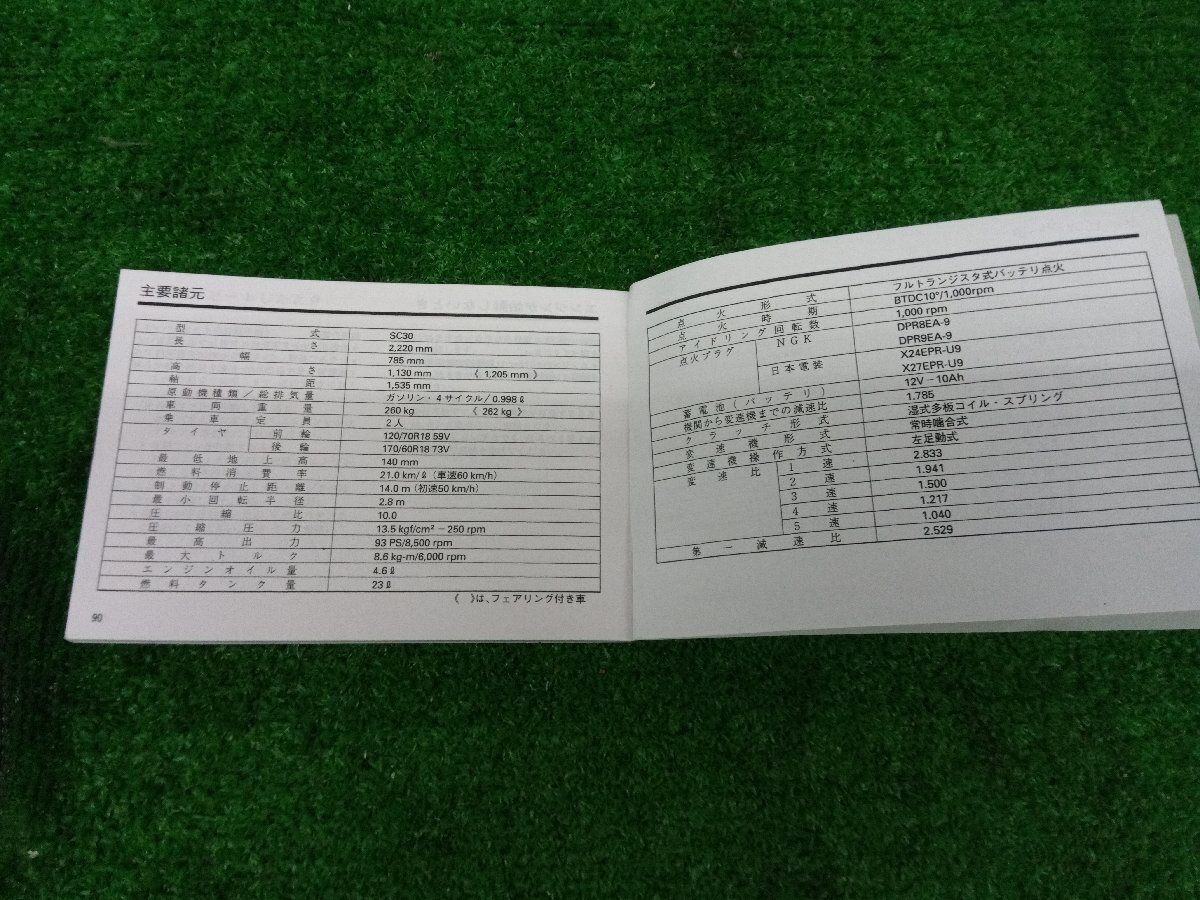 主要諸元
型式 SC30
長さ 2,220 mm
幅 785 mm
高さ 1,130 mm 《 1,205 mm 》
軸距 1,535 mm
原動機種類／総排気量 ガソリン・4サイクル/0.998ℓ
車両重量 260 kg 《 262 kg 》
乗車定員 2 人
タイヤ 前輪 120/70R18 59V
後輪 170/60R18 73V
最低地上高 140 mm
燃料消費率 21.0 km/ℓ (車速60 km/h)
制動停止距離 14.0 m (初速50 km/h)
最小回転半径 2.8 m
圧縮比 10.0
圧縮圧力 13.5 kgf/cm² − 250 rpm
最高出力 93 PS/8,500 rpm
最大トルク 8.6 kg-m/6,000 rpm
エンジンオイル量 4.6 ℓ
燃料タンク量 23 ℓ
《 》は、フェアリング付き車
90
点火形式 フルトランジスタ式バッテリ点火
点火時期 BTDC10°/1,000rpm
アイドリング回転数 1,000 rpm
点火プラグ NGK DPR8EA-9
DPR9EA-9
日本電装 X24EPR-U9
X27EPR-U9
蓄電池(バッテリ) 12V − 10Ah
機関から変速機までの減速比 1.785
クラッチ形式 湿式多板コイル・スプリング
変速機形式 常時噛合式
変速機操作方式 左足動式
変速比 1速 2.833
2速 1.941
3速 1.500
4速 1.217
5速 1.040
第一減速比 2.529